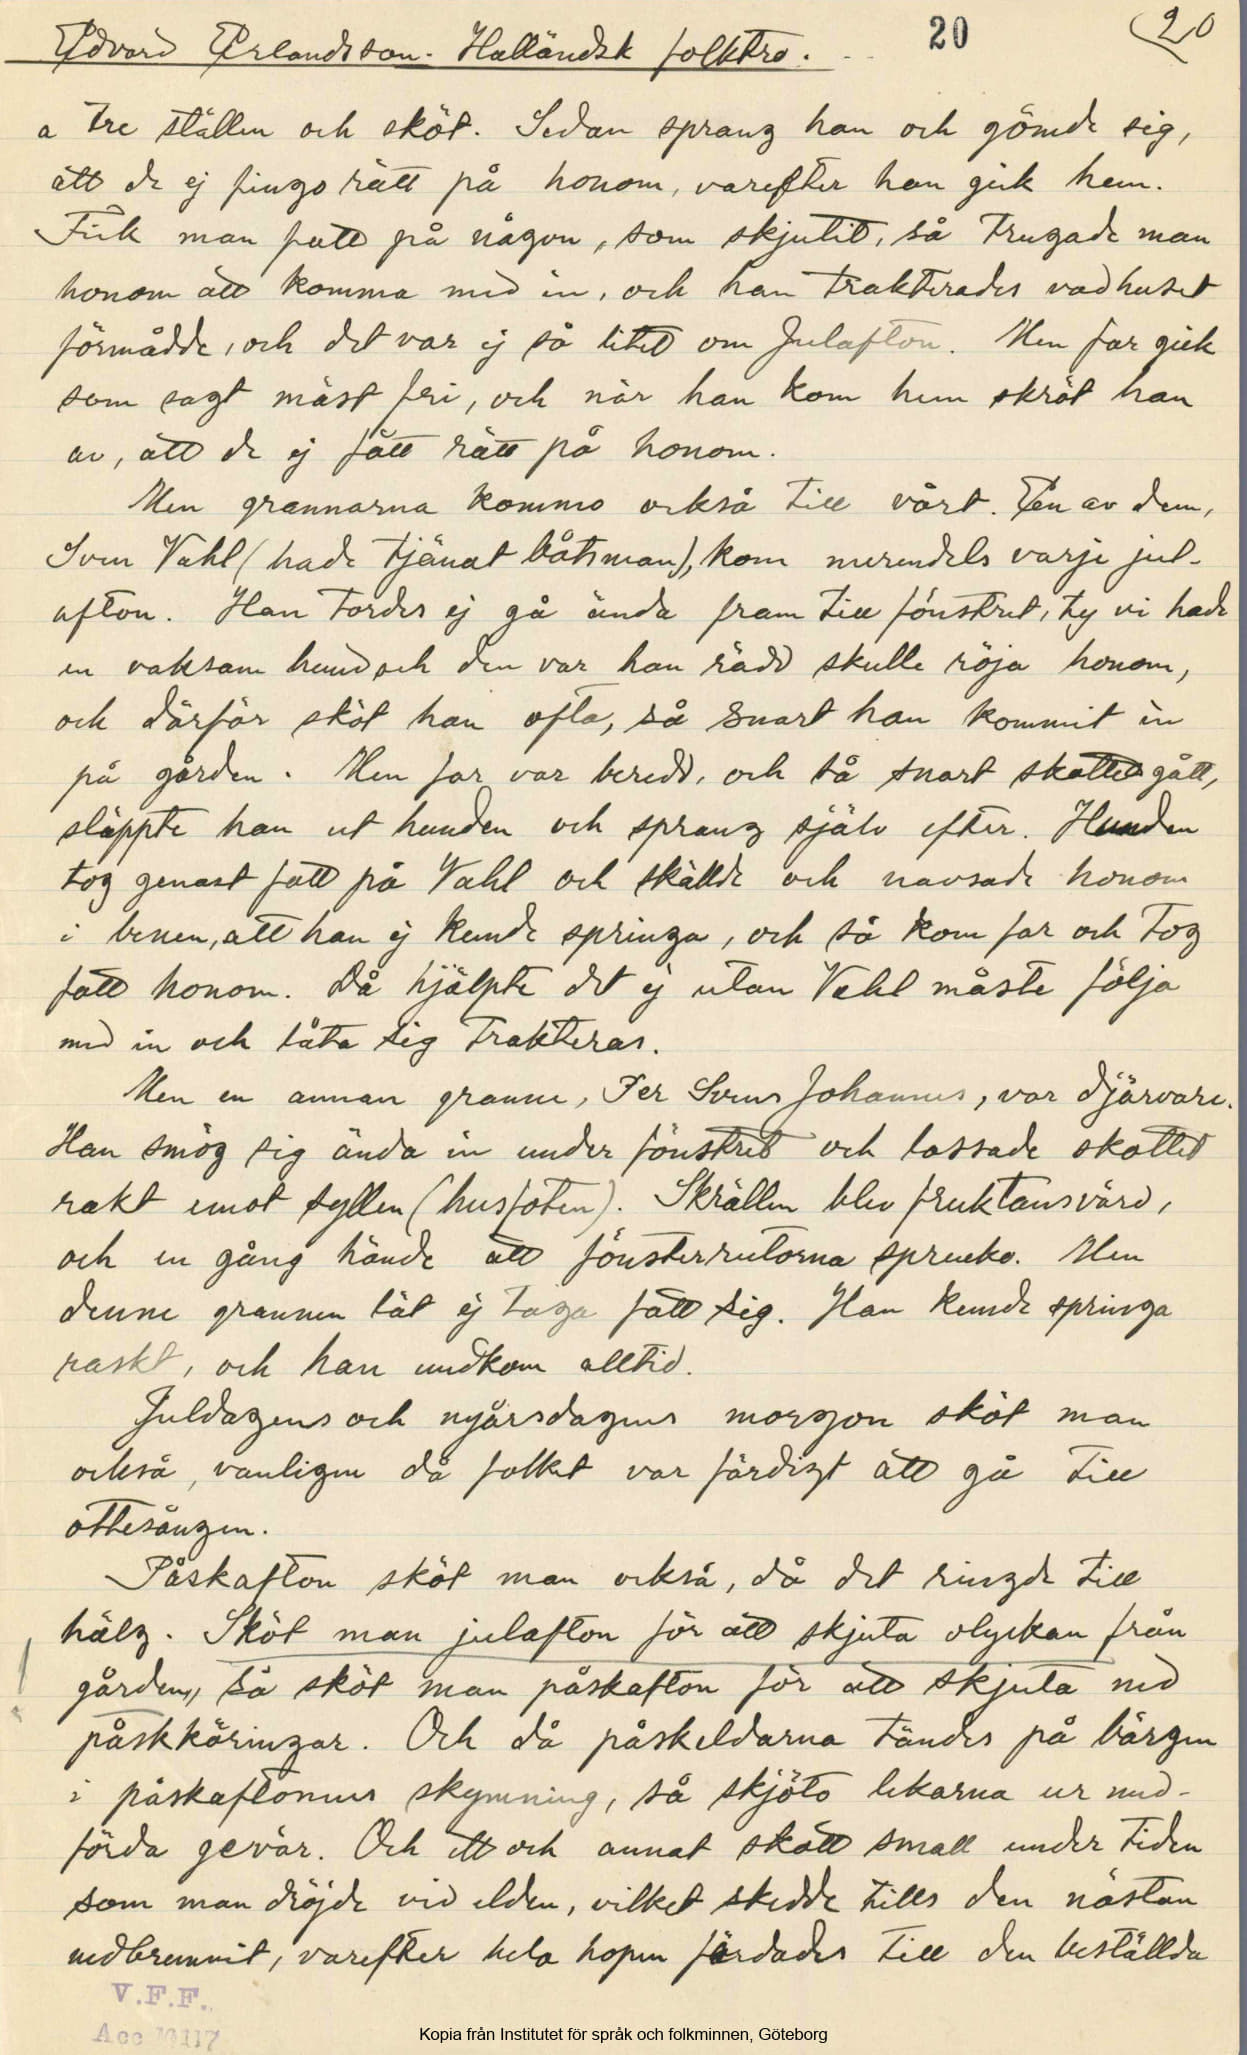 Edvard Erlandsson. Halländsk folktro.
20
20
a tre ställen och sköt. Sedan sprang han och gömde sig,
att de ej fingo rätt på honom, varefter han gick hem.
Fick man fatt på någon, som skjutit, så trugade man
honom att komma med in, och han trakterades vad huset
förmådde, och det var ej så litet om Julafton. Men far gick
som sagt mäst fri, och när han kom hem skröt han
av, att de ej fått rätt på honom.
Men grannarna kommo också till vårt. En av dem,
Sven Vahl (hade tjänat båtsman), kom merendels varje jul-
afton. Han tordes ej gå ända fram till fönstret, ty vi hade
en vaksam hund och den var han rädd skulle röja honom,
och därför sköt han ofta, så snart han kommit in
på gården. Men far var beredd, och så snart skottet gått,
släppte han ut hunden och sprang själv efter. Hunden
tog genast fatt på Vahl och skällde och navsade honom
i benen, att han ej kunde springa, och så kom far och tog
fatt honom. Då hjälpte det ej utan Vahl måste följa
med in och låta sig trakteras.
Men en annan granne, Per Svens Johannes, var djärvare.
Han smög sig ända in under fönstret och lossade skottet
rakt emot syllen (husfoten). Skrällen blev fruktansvärd,
och en gång hände att fönsterrutorna sprucko. Men
denne grannen lät ej taga fatt sig. Han kunde springa
raskt, och han undkom alltid.
Juldagens och nyårsdagens morgon sköt man
också, vanligen då folket var färdigt att gå till
ottesången.
Påskafton sköt man också, då det ringde till
hälg. Sköt man julafton för att skjuta olyckan från
gården, så sköt man påskafton för att skjuta ned
påskkäringar. Och då påskeldarna tändes på bärgen
i påskaftonens skymning, så skjöto lekarna ur med-
förda gevär. Och ett och annat skott small under tiden
som man dröjde vid elden, vilket skedde tills den nästan
nedbrunnit, varefter hela hopen färdades till den beställda
V.F.F.
Acc
Kopia från Institutet för språk och folkminnen, Göteborg